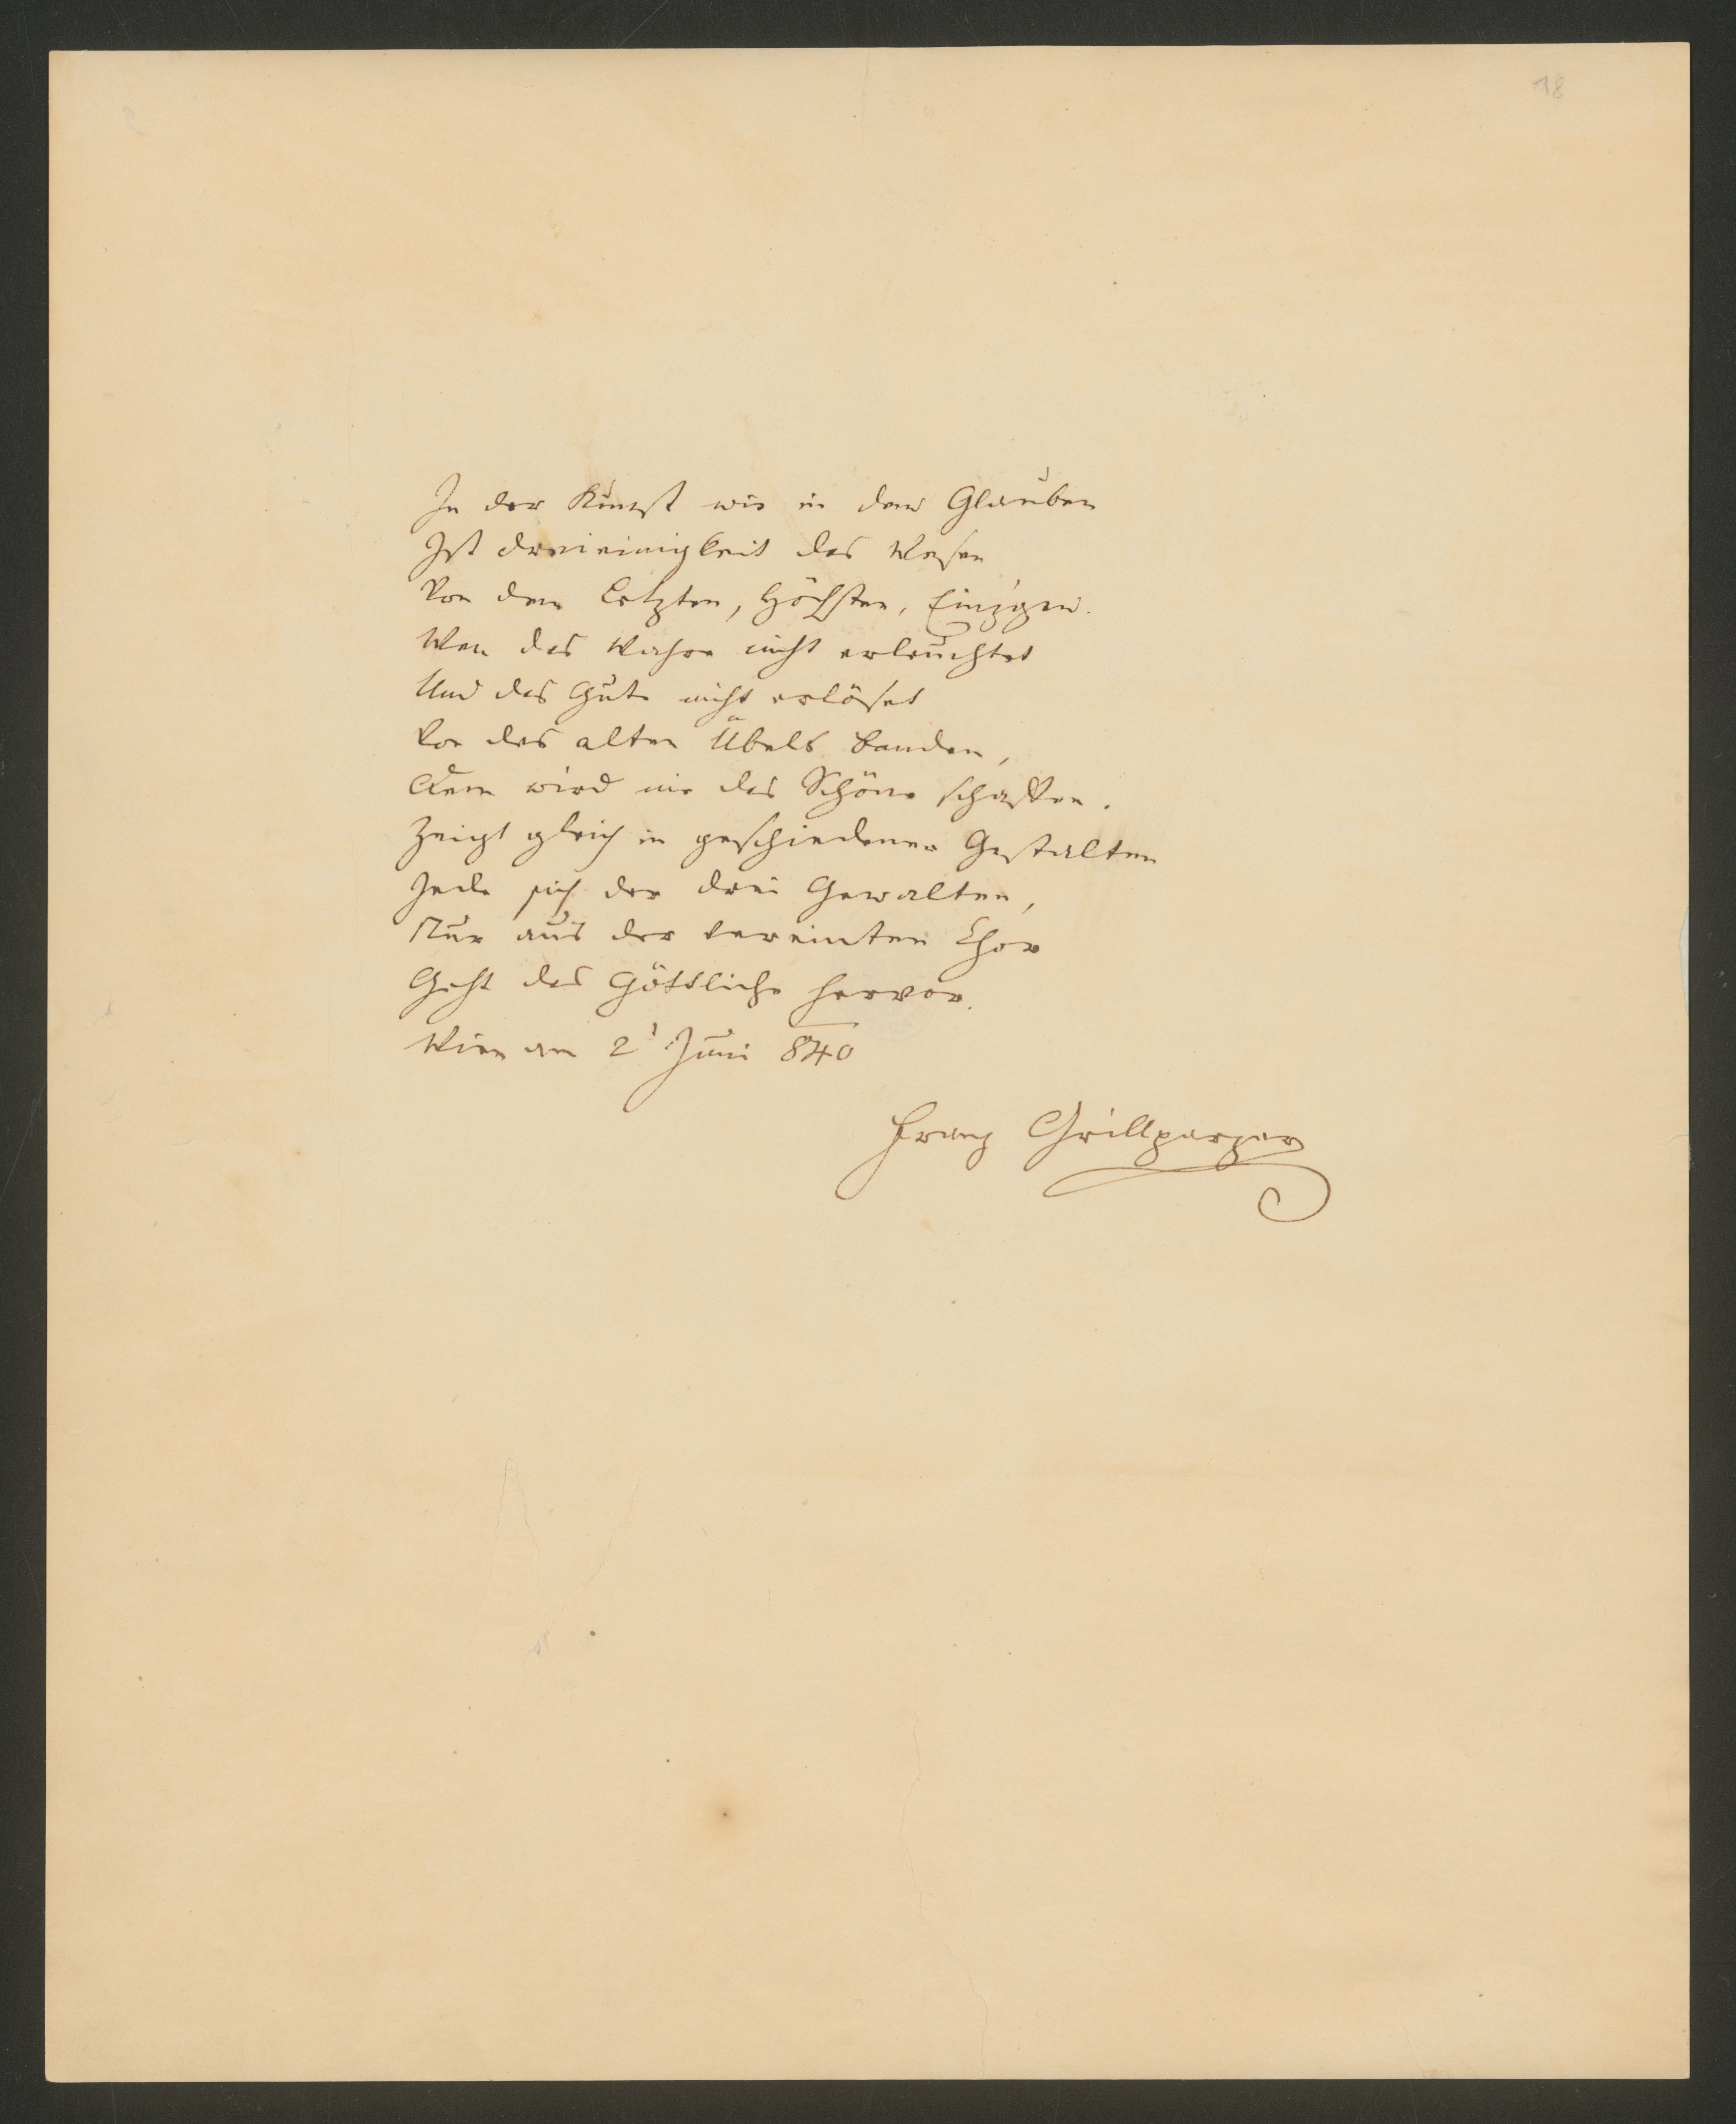 18
In der Kunst wie in dem Glauben
Ist dreieinigkeit das Wesen
Von dem Letzten, Höchsten, Einzgen.
Wen das Wahre nicht erleuchtet
Und das Gute nicht erlöset
Von des alten Übels banden,
Dem wird nie das Schöne schaffen.
Zeigt gleich in geschiedenen Gestalten
Jede sich der drei Gewalten,
Nur aus der vereinten Chor
Geht das Göttliche hervor.
Wien am 2 Juni 840
Franz Grillparzer